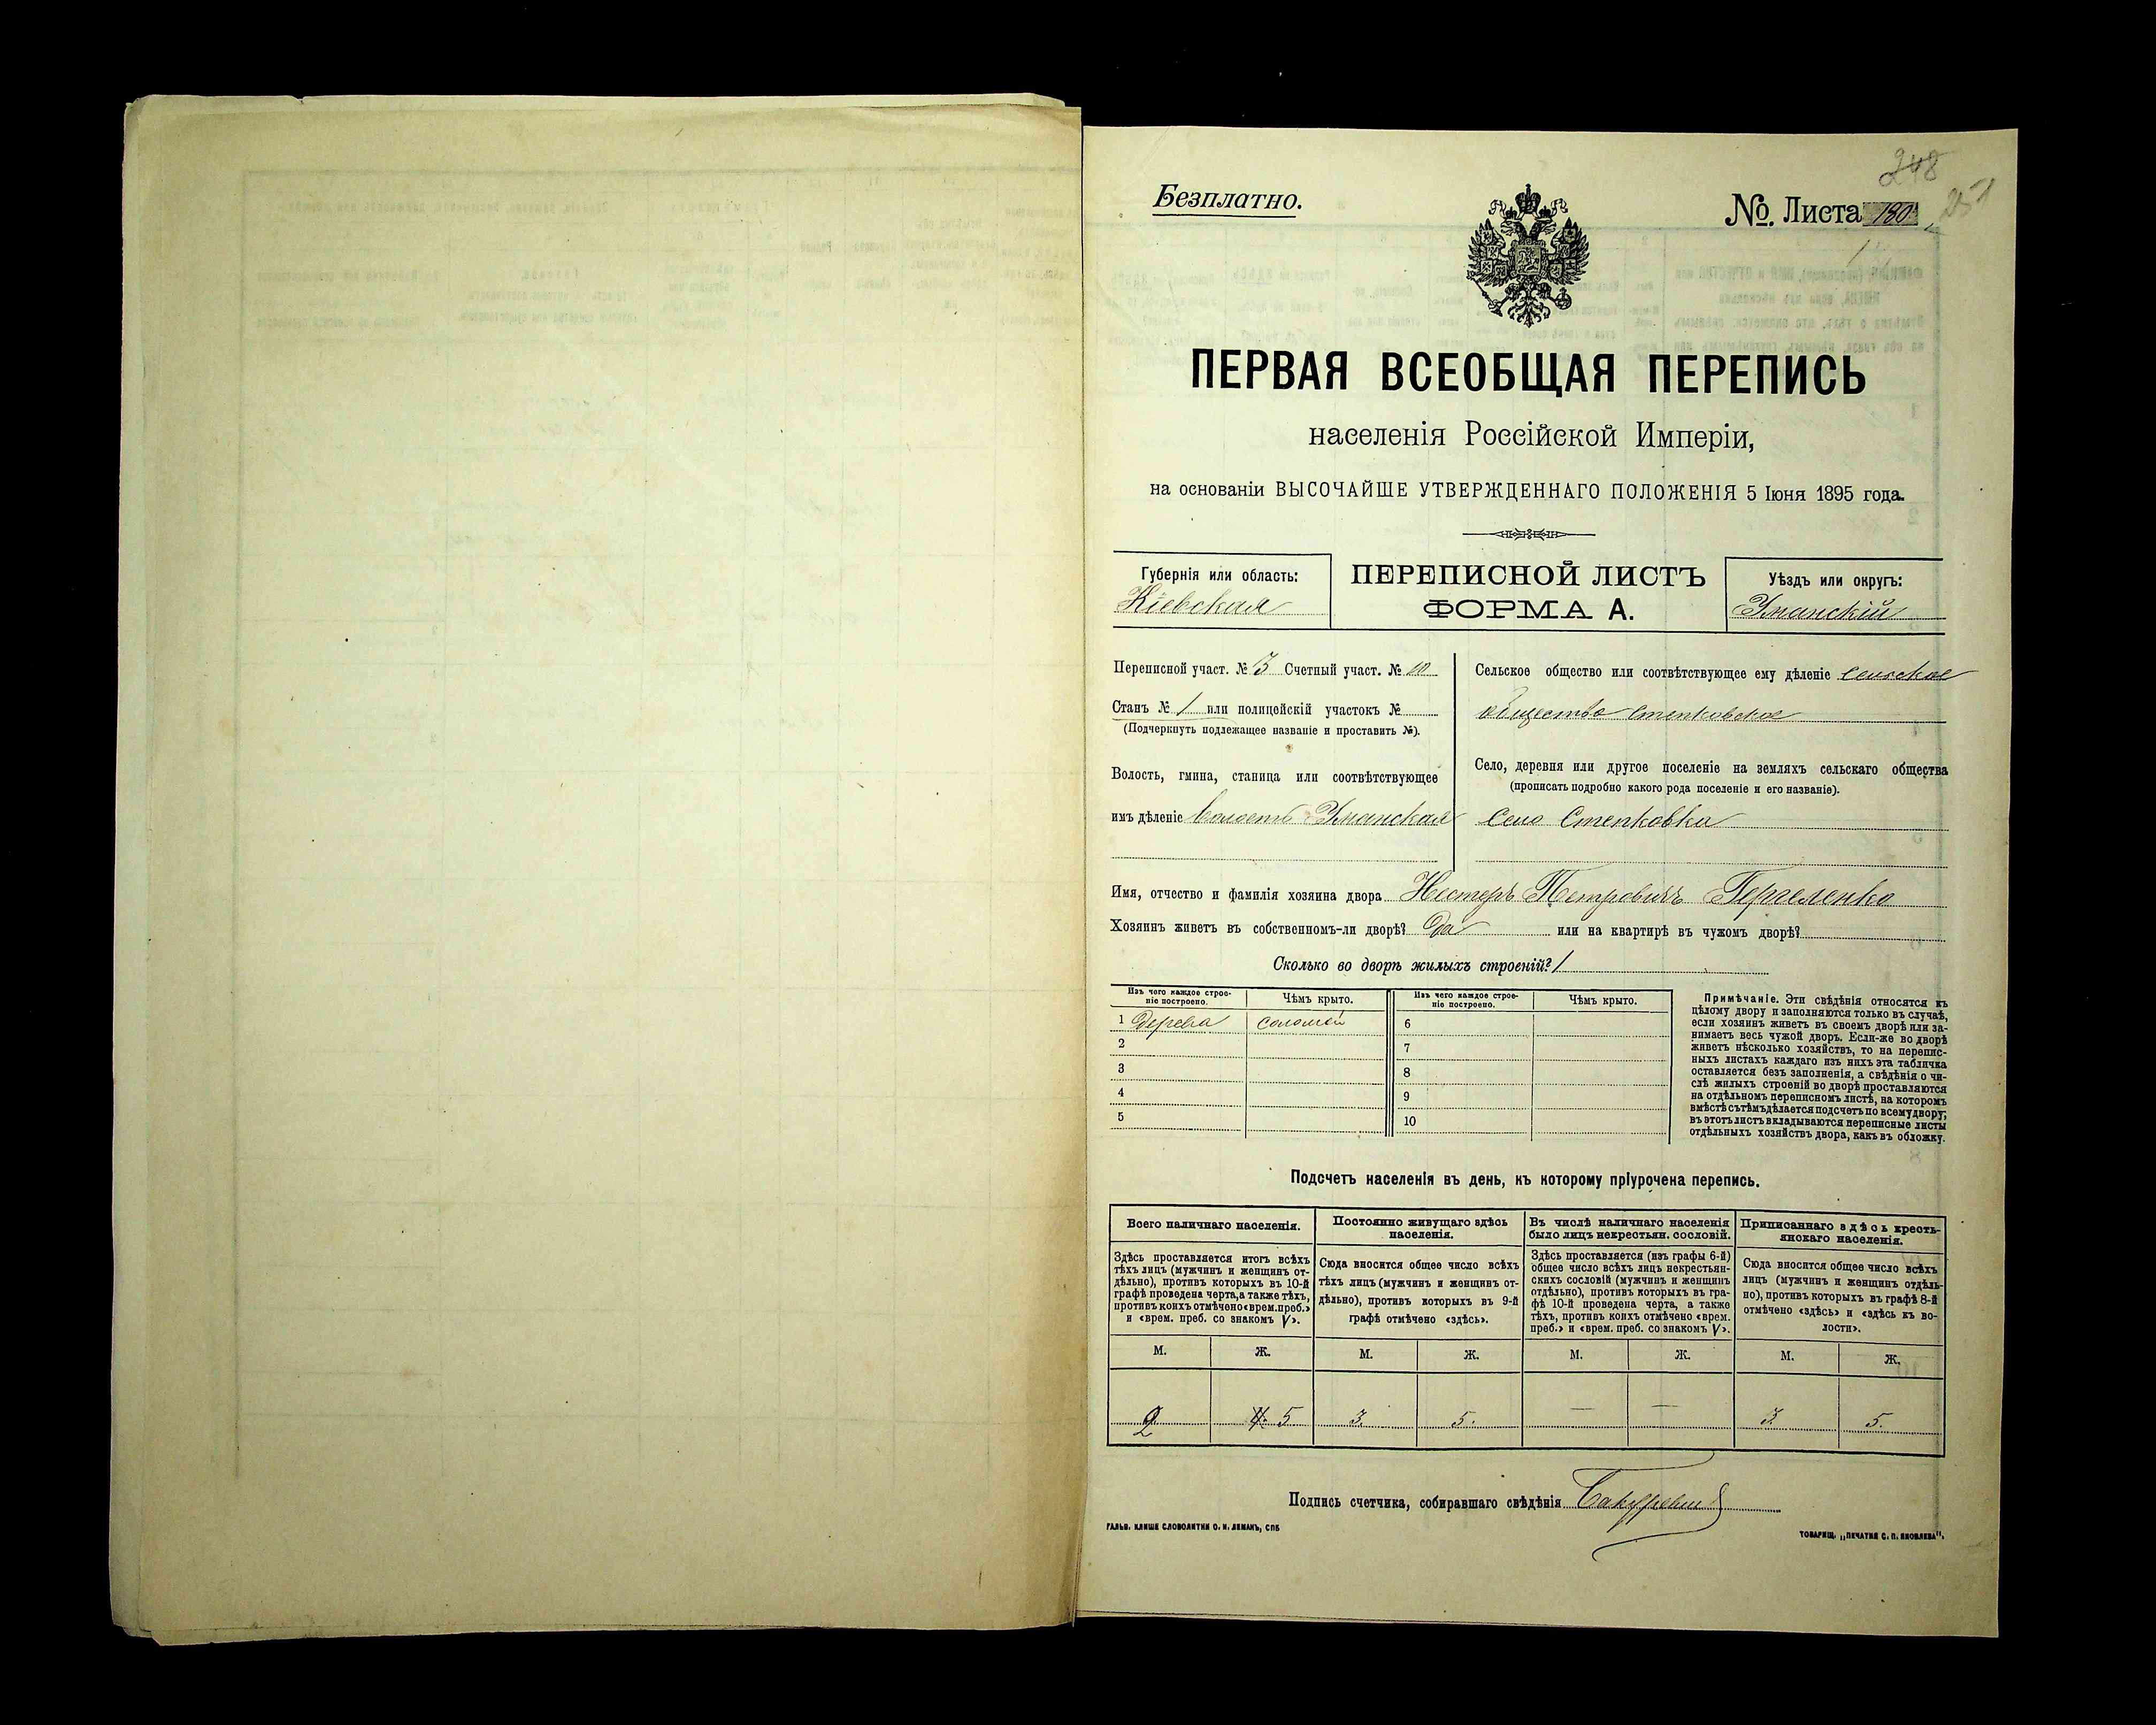 248
251
Безплатно.
№. Листа 180
ПЕРВАЯ ВСЕОБЩАЯ ПЕРЕПИСЬ
населенія Россійской Имперіи,
на основаніи ВЫСОЧАЙШЕ УТВЕРЖДЕННАГО ПОЛОЖЕНІЯ 5 Іюня 1895 года.
Губернія или область:
Кіевская
ПЕРЕПИСНОЙ ЛИСТЪ
ФОРМА А.
Уѣздъ или округъ:
Уманскій
Переписной участ. № 3 Счетный участ. № 10
Станъ № 1 или полицейскій участокъ №
(Подчеркнуть подлежащее названіе и проставить №).
Волость, гмина, станица или соотвѣтствующее
имъ дѣленіе Волость Уманская
Сельское общество или соотвѣтствующее ему дѣленіе сельское
общество Степковское
Село, деревня или другое поселеніе на земляхъ сельскаго общества
(прописать подробно какого рода поселеніе и его названіе).
Село Степковка
Имя, отчество и фамилія хозяина двора Нестеръ Петровичъ
Хозяинъ живетъ въ собственномъ-ли дворѣ? Да или на квартирѣ въ чужомъ дворѣ?
Сколько во дворѣ жилыхъ строеній? 1
Изъ чего каждое строе-
ніе построено.
Чѣмъ крыто.
Изъ чего каждое строе-
ніе построено.
Чѣмъ крыто.
1 Дерева соломой 6
2 7
3 8
4 9
5 10
Примѣчаніе. Эти свѣдѣнія относятся къ
цѣлому двору и заполняются только въ случаѣ,
если хозяинъ живетъ въ своемъ дворѣ или за-
нимаетъ весь чужой дворъ. Если-же во дворѣ
живетъ нѣсколько хозяйствъ, то на перепис-
ныхъ листахъ каждаго изъ нихъ эта табличка
оставляется безъ заполненія, а свѣдѣнія о чи-
слѣ жилыхъ строеній во дворѣ проставляются
на отдѣльномъ переписномъ листѣ, на которомъ
вмѣстѣ съ тѣмъ дѣлается подсчетъ по всему двору;
въ этотъ листъ вкладываются переписные листы
отдѣльныхъ хозяйствъ двора, какъ въ обложку.
Подсчетъ населенія въ день, къ которому пріурочена перепись.
Всего наличнаго населенія.
Здѣсь проставляется итогъ всѣхъ
тѣхъ лицъ (мужчинъ и женщинъ от-
дѣльно), противъ которыхъ въ 10-й
графѣ проведена черта, а также тѣхъ,
противъ коихъ отмѣчено «врем. преб.»
и «врем. преб. со знакомъ V».
Постоянно живущаго здѣсь
населенія.
Сюда вносится общее число всѣхъ
тѣхъ лицъ (мужчинъ и женщинъ от-
дѣльно), противъ которыхъ въ 9-й
графѣ отмѣчено «здѣсь».
Въ числѣ наличнаго населенія
было лицъ некрестьян. сословій.
Здѣсь проставляется (изъ графы 6-й)
общее число всѣхъ лицъ некрестьян-
скихъ сословій (мужчинъ и женщинъ
отдѣльно), противъ которыхъ въ гра-
фѣ 10-й проведена черта, а также
тѣхъ, противъ коихъ отмѣчено «врем.
преб.» и «врем. преб. со знакомъ V».
Приписаннаго здѣсь кресть-
янскаго населенія.
Сюда вносится общее число всѣхъ
лицъ (мужчинъ и женщинъ отдѣль-
но), противъ которыхъ въ графѣ 8-й
отмѣчено «здѣсь» и «здѣсь къ во-
лости».
М. Ж. М. Ж. М. Ж. М. Ж.
2 4. 5 3. 5. — — 3. 5.
Подпись счетчика, собиравшаго свѣдѣнія
ГАЛЬВ. КЛИШЕ СЛОВОЛИТНИ О. И. ЛЕМАНЪ, СПБ
ТОВАРИЩ. „ПЕЧАТНЯ С. П. ЯКОВЛЕВА".